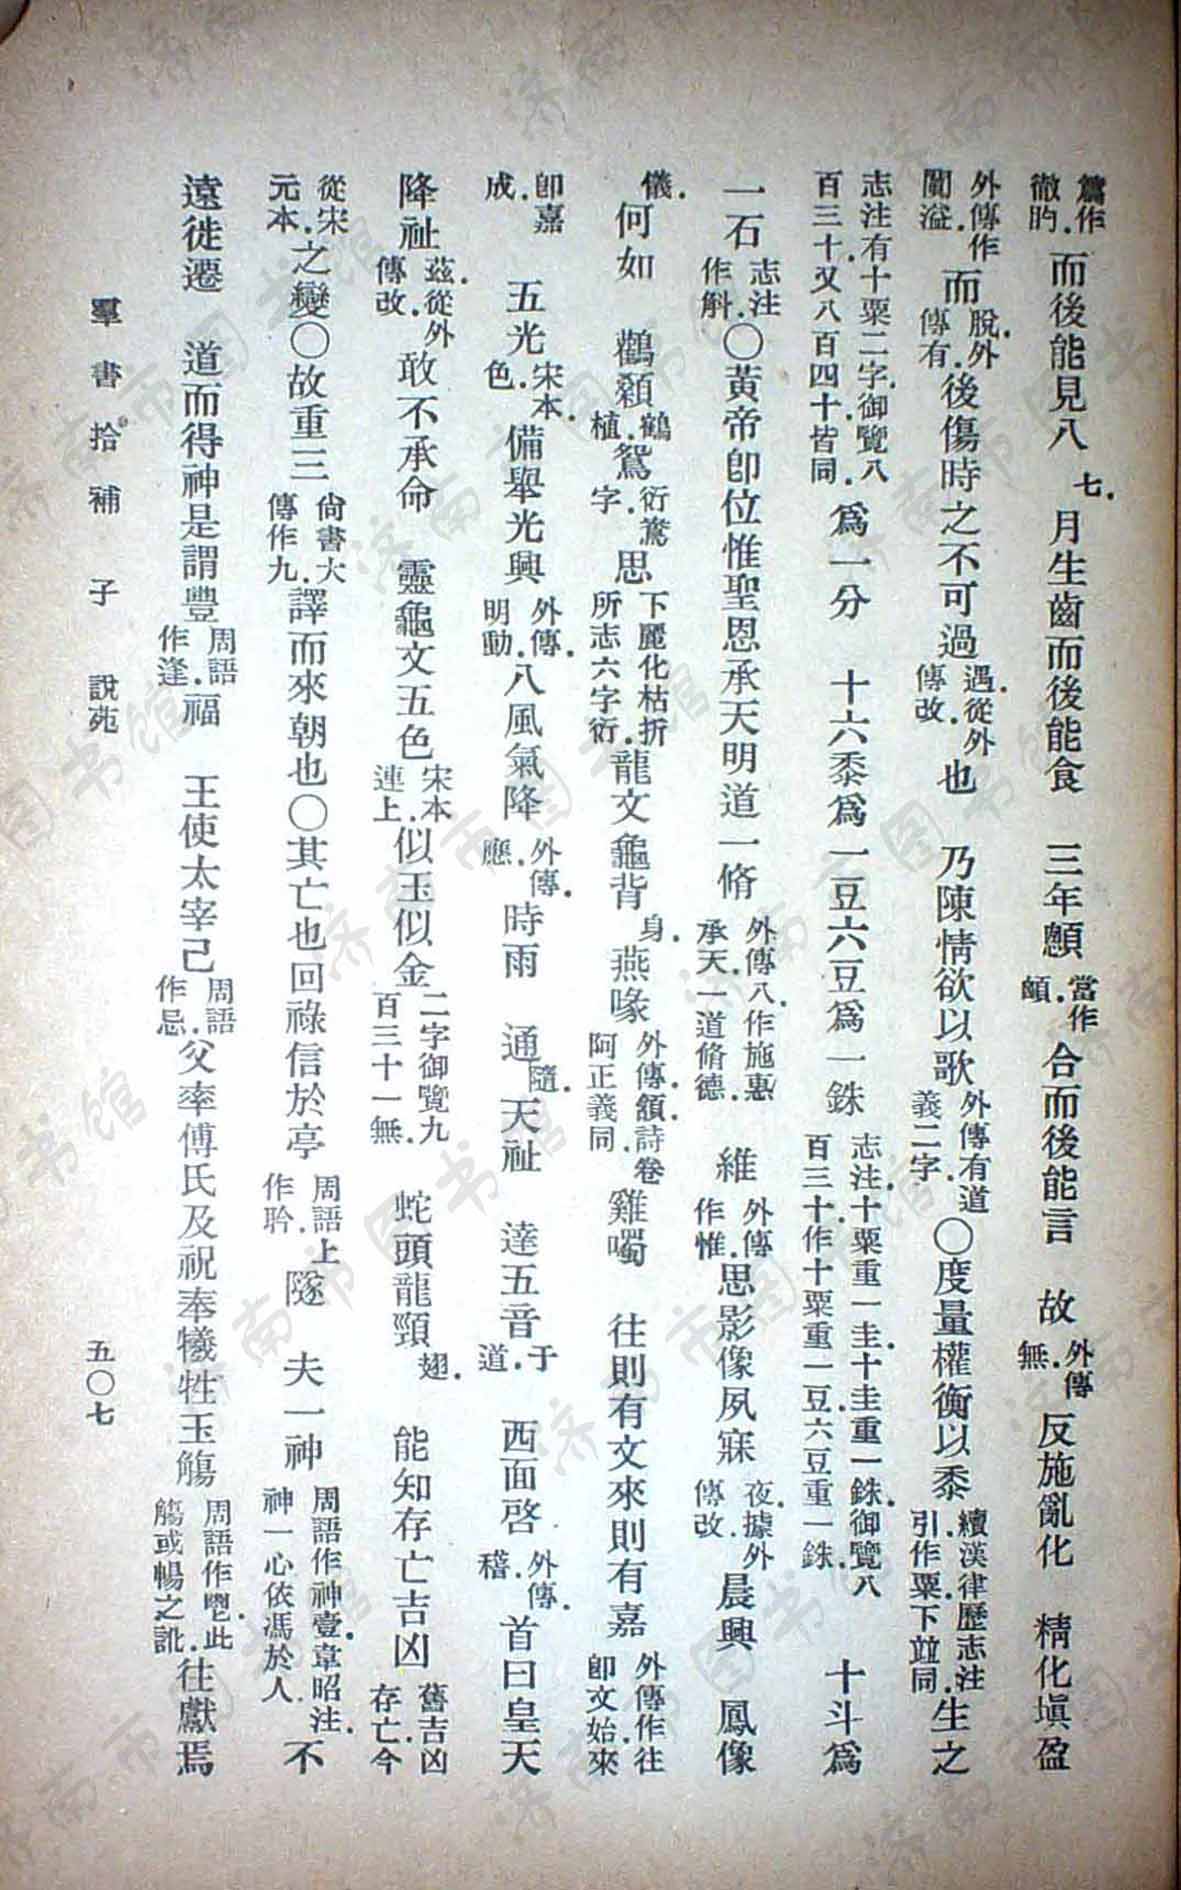 篇作徹盷.而後能見八七.月生齒而後能食　三年顖當作䪿.合而後能言　故外傳無.反施亂化　精化塡盈
外傳作闐溢.而脫.外傳有.後傷時之不可過遇.從外傳改.也　乃陳情欲以歌外傳有道義二字.〇度量權衡以黍續漢律歷志注引作粟.下竝同.生之
志注有十粟二字.御覽八百三十.又八百四十.皆同.爲一分　十六黍爲一豆六豆爲一銖志注.十粟重一圭.十圭重一銖.御覽八百三十.作十粟重一豆.六豆重一銖.　十斗爲
一石志注作斛.〇黃帝卽位惟聖恩承天明道一脩外傳八.作施惠承天.一道脩德.　維外傳作惟.思影像夙寐夜.據外傳改.晨興　鳳像
儀.何如　鸛顙鸛植.鴛衍鴛字.思下麗化枯折所志六字衍.龍文龜背身.　燕喙外傳.頷.詩卷阿正義同.雞噣　往則有文來則有嘉外傳作往卽文.始來
卽嘉成.　五光宋本.色.備舉光興外傳.明動.八風氣降外傳.應.時雨　通隨.天祉　達五音于道.　西面啓外傳.稽.首曰皇天
降祉茲.從外傳改.敢不承命　靈龜文五色宋本連上.似玉似金二字御覽九百三十一無.　蛇頭龍頸翅.　能知存亡吉凶舊吉凶存亡.今
從宋元本.之變〇故重三尙書大傳作九.譯而來朝也〇其亡也回祿信於亭周語上作聆.隧　夫一神周語作神壹.韋昭注.神一心依馮於人.不
遠徙遷　道而得神是謂豐周語作逢.福　王使太宰己周語作忌.父率傅氏及祝奉犧牲玉觴周語作鬯.此觴或暢之訛.往獻焉
羣書拾補　子　說苑　五〇七
济南市图书馆